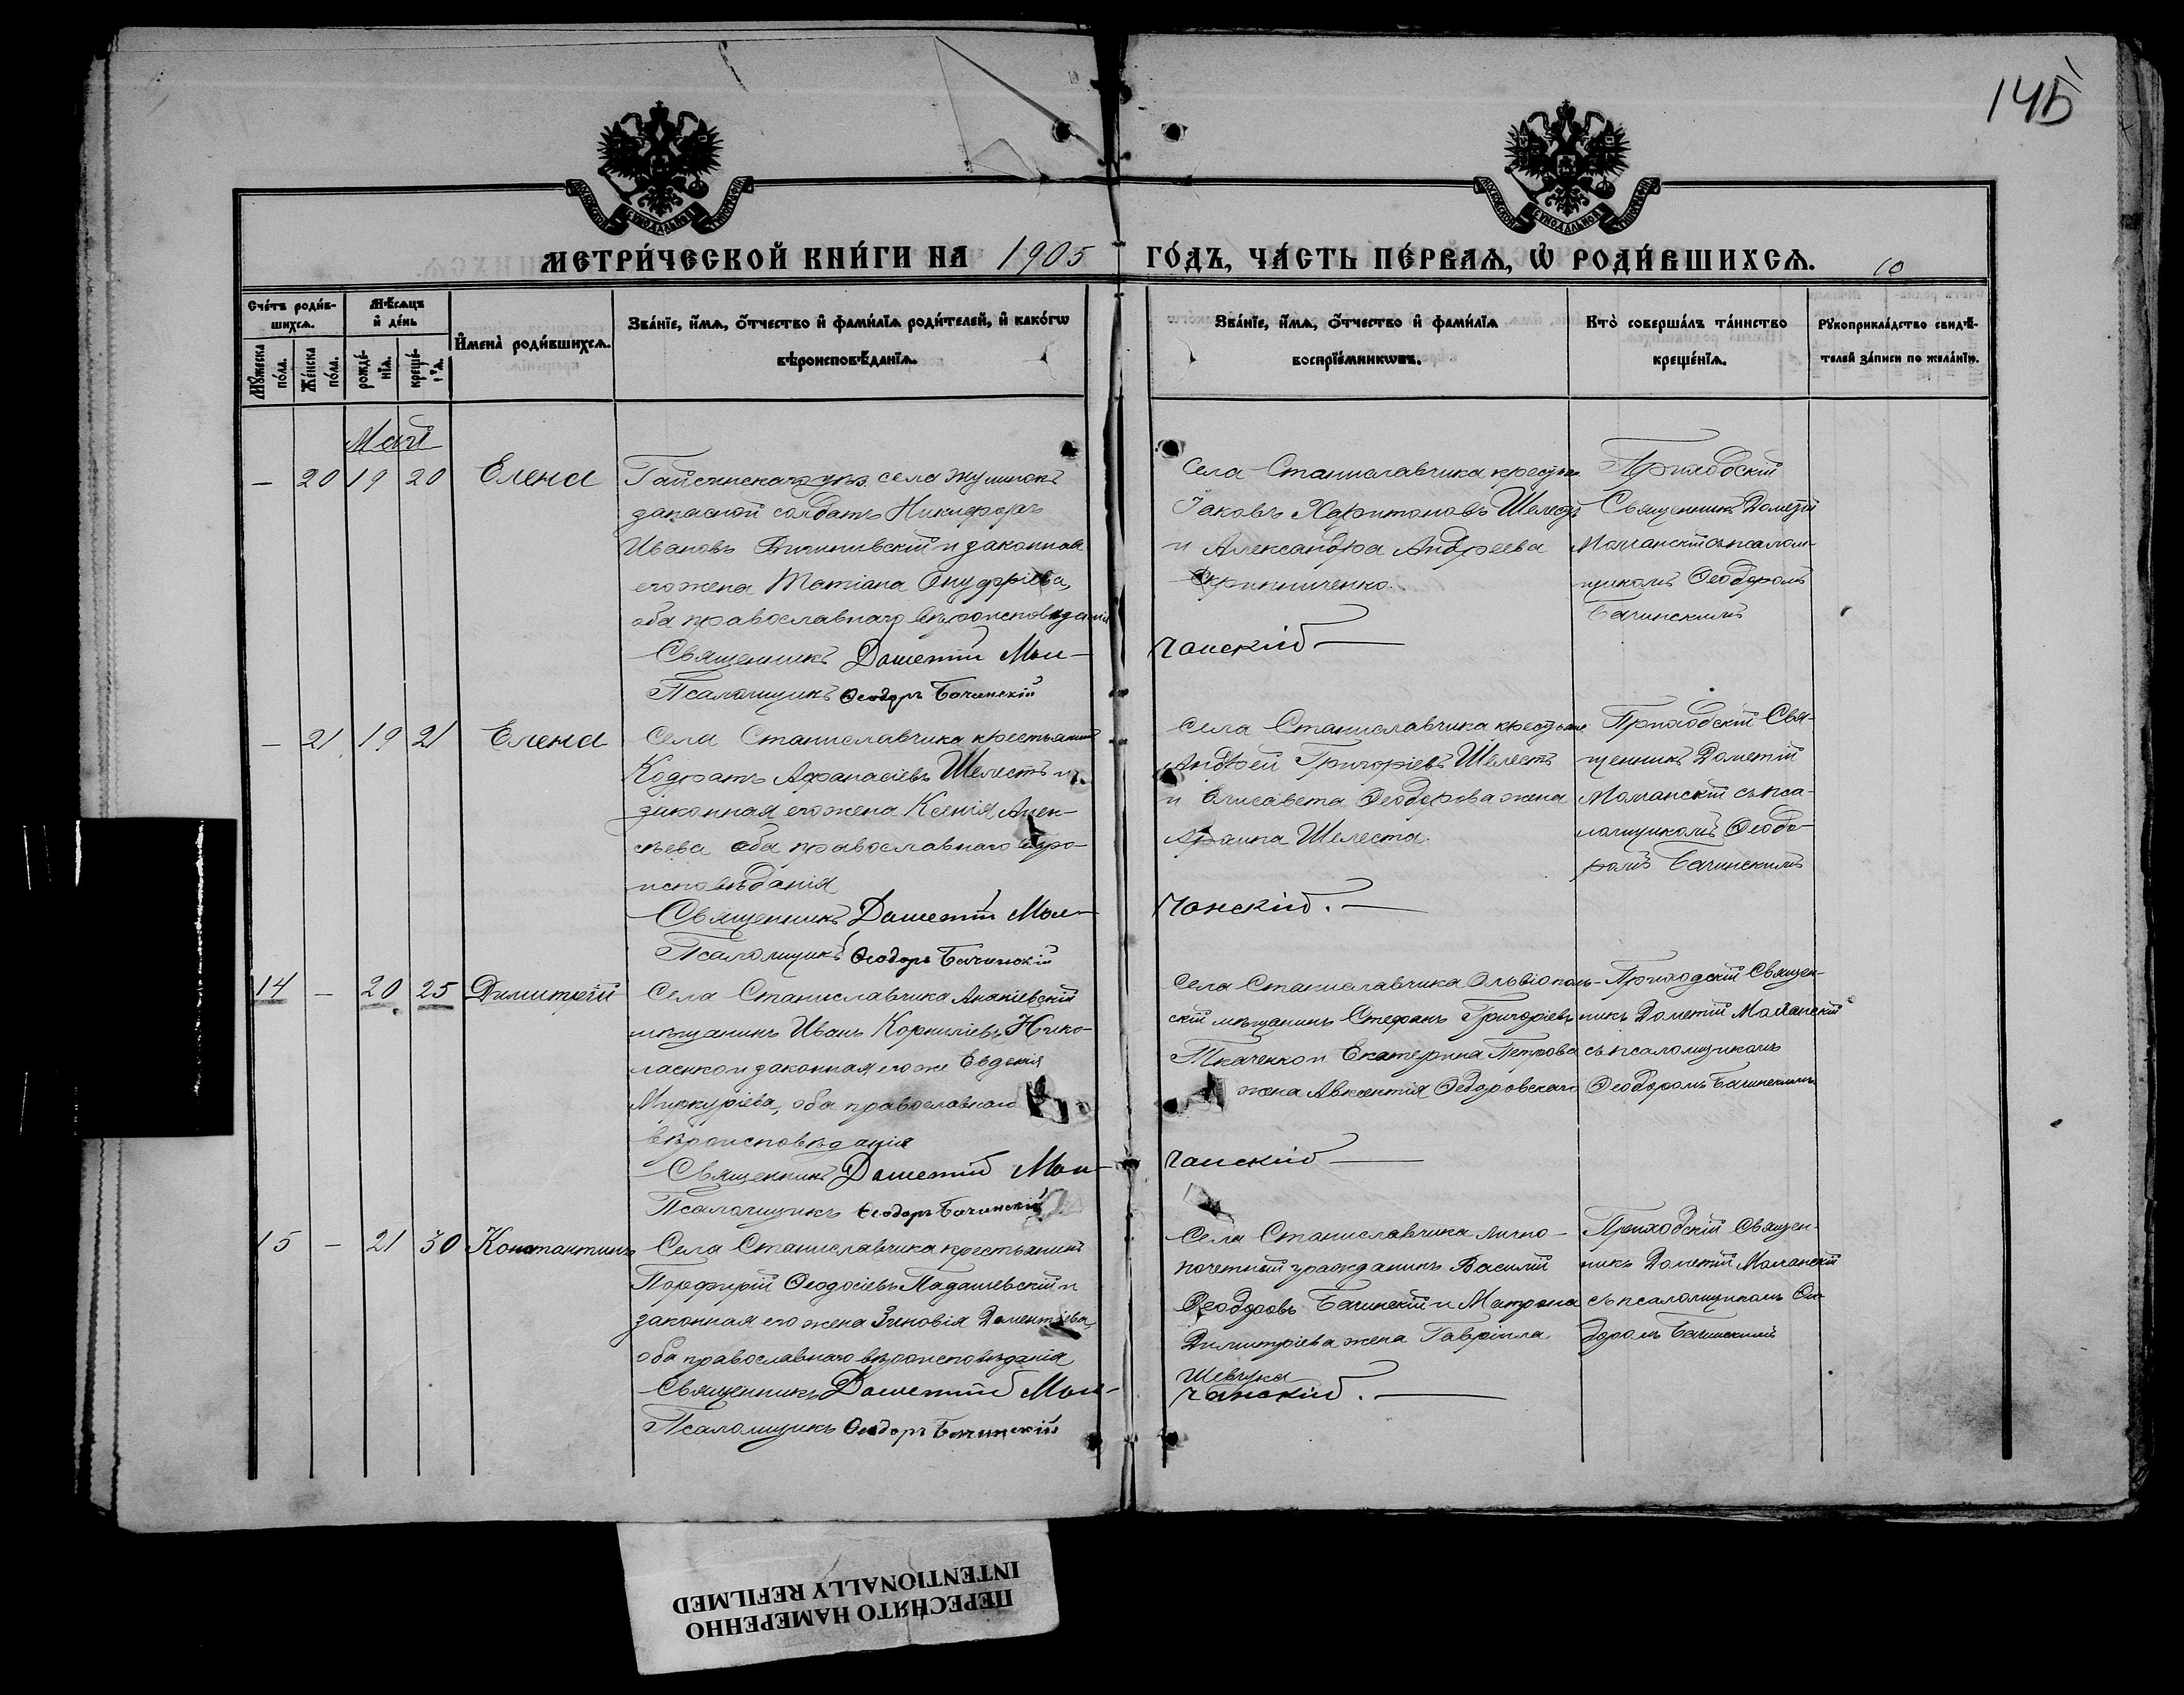 145
МЕТРИ́ЧЕСКОЙ КНИ́ГИ НА 1905
ГО́ДЪ, ЧА́СТЬ ПЕ́РВАѦ, Ѡ҆ РОДИ́ВШИХСѦ.
10
Сче́тъ роди́в-
шихсѧ.
Мѣ́сѧцъ
и҆ де́нь
Мꙋ́жеска
по́ла.
Же́нска
по́ла.
рожде́-
нїѧ.
креще́-
нїѧ.
И҆мена̀ роди́вшихсѧ.
Зва́нїе, и҆́мѧ, ѻ҆́тчество и҆ фами́лїѧ роди́телей, и҆ како́гѡ
вѣроисповѣ́данїѧ.
Зва́нїе, и҆́мѧ, ѻ҆́тчество и҆ фами́лїѧ
воспрїе́мникѡвъ.
Кто̀ соверша́лъ та́инство
креще́нїѧ.
Рꙋкоприкла́дство свидѣ́-
телей за́писи по жела́нїю.
Май
— 20 19 20 Елена
Гайсинскаго уѣз. села
запасной солдатъ Никифоръ
Ивановъ и законная
его жена Татіана Онуфріева,
оба православнаго вѣроисповѣданія
Священникъ Дометій Мол-
чанскій
Псаломщикъ Ѳеодоръ Бачинскій
Села Станиславчика крестьян
Іаковъ Харитоновъ Шелестъ
и Александра Андреева
Скрипниченко.
Приходскій
Священникъ Дометій
Молчанскій съ псалом-
щикомъ Ѳеодоромъ
Бачинскимъ
— 21 19 21 Елена
Села Станиславчика крестьянинъ
Кодратъ Афанасіевъ Шелестъ и
законная его жена Ксенія Алек-
сѣева оба православнаго вѣро-
исповѣданія
Священникъ Дометій Мол-
чанскій.
Псаломщикъ Ѳеодоръ Бачинскій
Села Станиславчика крестьяне
Андрей Григоріевъ Шелестъ
и Елисавета Ѳеодорова жена
Шелеста.
Приходскій Свя-
щенникъ Дометій
Молчанскій съ пса-
ломщикомъ Ѳеодо-
ромъ Бачинскимъ
14 — 20 25 Димитрій
Села Станиславчика Ананіевскій
мѣщанинъ Иванъ Корниліевъ Нико-
лаенко и законная его же Евдокія
Меркуріева, оба православнаго
вѣроисповѣданія
Священникъ Дометій Мол-
чанскій
Псаломщикъ Ѳеодоръ Бачинскій
Села Станиславчика Ольвіополь-
скій мѣщанинъ Стефанъ Григоріевъ
Ткаченко и Екатерина Петрова
жена Авксентія Ѳедоровскаго
Приходскій Священ-
никъ Дометій Молчанскій
съ псаломщикомъ
Ѳеодоромъ Бачинскимъ
15 — 21 30 Константинъ
Села Станиславчика крестьянинъ
Порфирій Ѳеодосіевъ Падашевскій и
законная его жена Зиновія Дементіева,
оба православнаго вѣроисповѣданія
Священникъ Дометій Мол-
чанскій.
Псаломщикъ Ѳеодоръ Бачинскій
Села Станиславчика лично-
почетный гражданинъ Василій
Ѳеодоровъ Бачинскій и Матрона
Димитріева жена Гавріила
Шевчука
Приходскій Священ-
никъ Дометій Молчанскій
съ псаломщикомъ Ѳео-
доромъ Бачинскимъ
ПЕРЕСНЯТО НАМЕРЕННО
INTENTIONALLY REFILMED